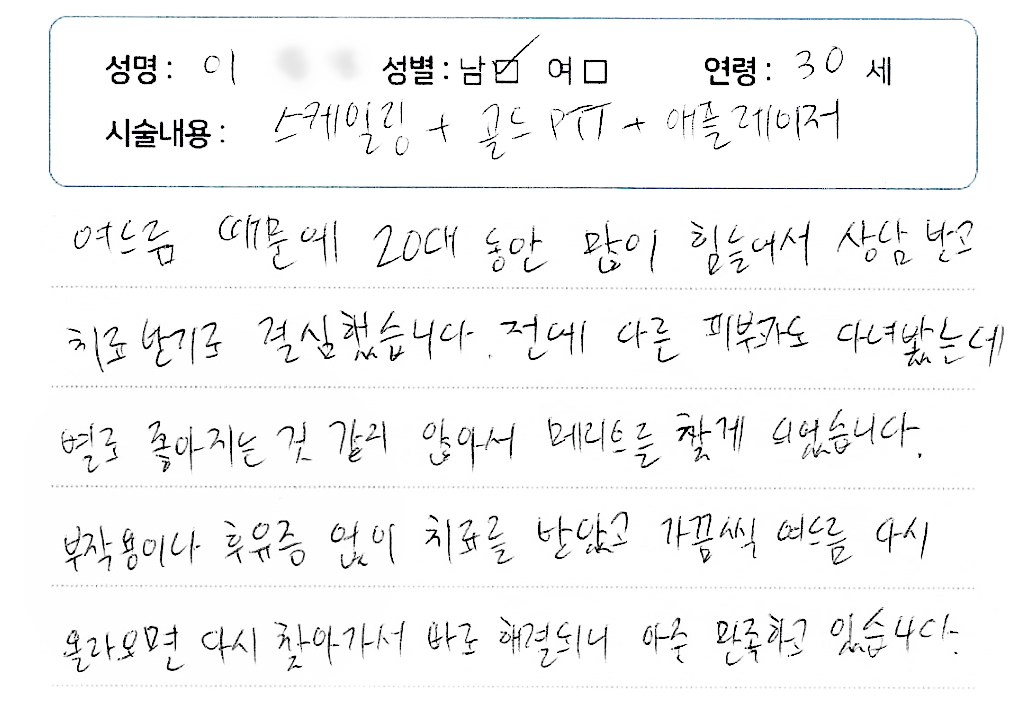 성명 : 이 성별 : 남 ☑ 여 □ 연령 : 30 세
시술내용 : 스케일링 + 골드 PTT + 애플레이저
여드름 때문에 20대 동안 많이 힘들어서 상담 받고
치료 받기로 결심했습니다. 전에 다른 피부과도 다녀봤는데
별로 좋아지는 것 같지 않아서 메리트를 찾게 되었습니다.
부작용이나 후유증 없이 치료를 받았고 가끔씩 여드름 다시
올라오면 다시 찾아가서 바로 해결되니 아주 만족하고 있습니다.